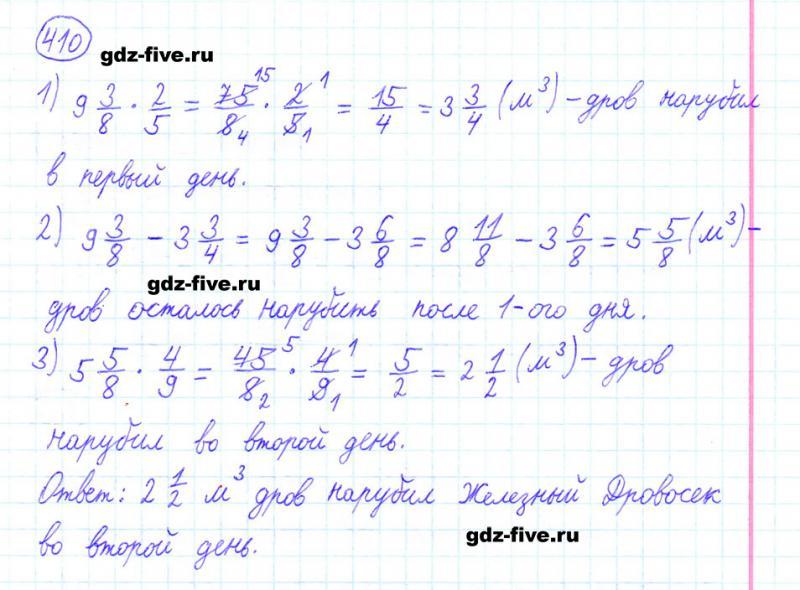 410 gdz-five.ru
1) 9 3/8 · 2/5 = 75/8 15 4 · 2/5 1 1 = 15/4 = 3 3/4 (м³) - дров нарубил
в первый день.
2) 9 3/8 - 3 3/4 = 9 3/8 - 3 6/8 = 8 11/8 - 3 6/8 = 5 5/8 (м³) -
gdz-five.ru
дров осталось нарубить после 1-ого дня.
3) 5 5/8 · 4/9 = 45/8 5 2 · 4/9 1 1 = 5/2 = 2 1/2 (м³) - дров
нарубил во второй день.
Ответ: 2 1/2 м³ дров нарубил Железный Дровосек
во второй день.
gdz-five.ru